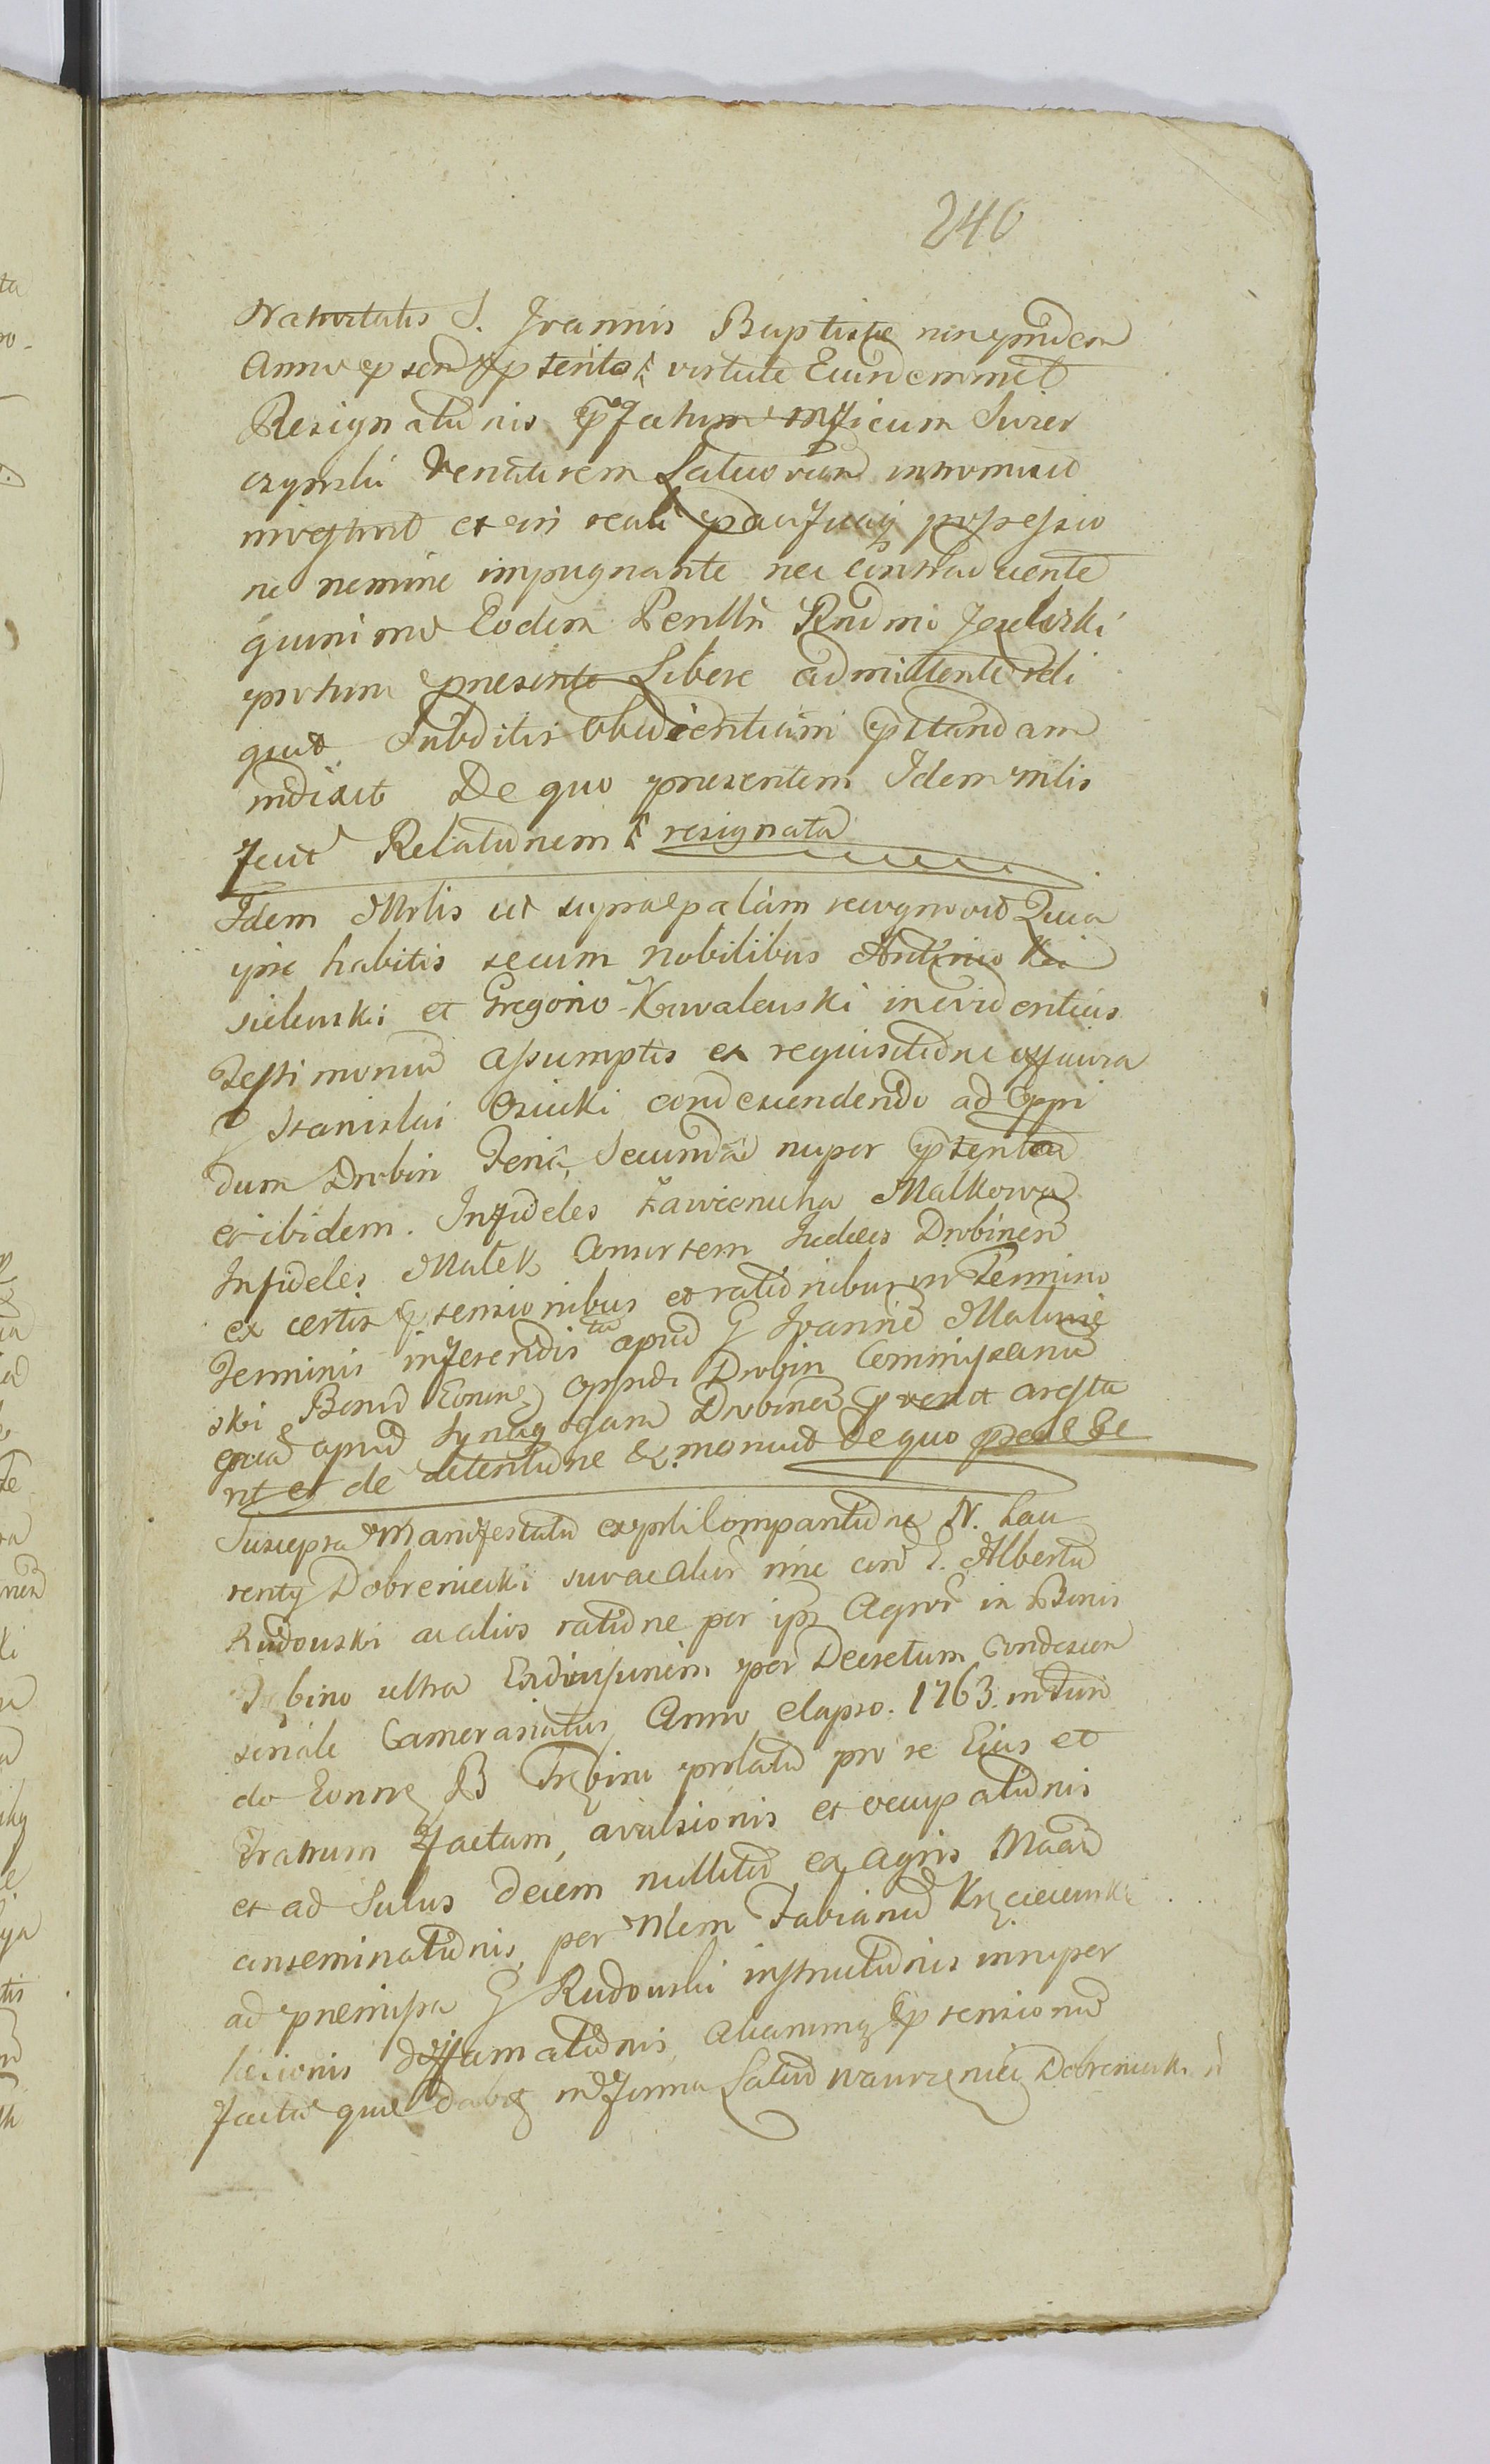 240
Nativitatis S. Joannis Baptistae non pridem
Anno praesen praeterito virtute Eiusdemmet
Resignationis praefatum Mficum Swier
czynski Venditorem Latiorum intromisit
investivit et in reali pacificaq possessio
ne nemine impugnante nec contradicente
quinimo Eodem Perillri Rndmo
protunc praesente Libere admittente reli
quit Subditis obedientiam praestandam
indixit De quo praesentem Idem Mlis
fecit Relationem resignata
Idem Mrlis ut supra palam recognovit Quia
ipse habitis secum nobilibus Antonio Ki
sielewski et Gregorio Kowalewski in evidentius
Testimonium assumptis ex requisitione
G Stanislai Osiecki condescendendo ad Oppi
dum Drobin Feria Secunda nuper praeterita
et ibidem. Infideles Zawienicha Malkowa
Infideles Malek Consortem Judaeos Drobinen
ex certis praetensionibus et rationibus in Termino
Terminis inferendis apud G Joannem Malinie
ski Bonor Eorum oppidi Drobin Commissarium
quam apud Synagogam Drobinen aresta
vit et de detentione &. monuit de quo
Suscepta Manifestatio exppli Comparitione N. Lau
renty Dobreniecki suo ac alior nne con G. Albertum
Rudowski ac alios ratione per ips Agror in Bonis
Trzbino ultra Exdivisionem per Decretum Condescen
sionale Camerariatus Anno elapso. 1763. in fun
do Eorum B Trębino prolatum pro se Eius et
Fratrum factam, avulsionis et occupationis
et ad Sulcos decem nullite ex Agris
anseminationis, per Mlem Fabianum
ad praemissa G Rudowski instructionis insuper
laesionis deffamationis, aliarumq praetensionum
factae quae dabit in Forma Latior Wawrzeniec Dobreniecki